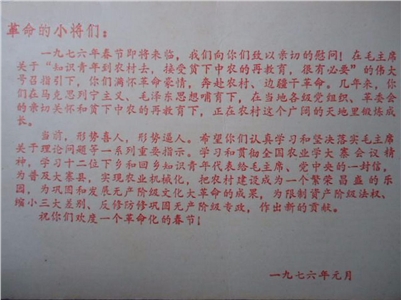 革命的小将们：
一九七六年春节即将来临，我们向你们致以亲切的慰问！在毛主席
关于“知识青年到农村去，接受贫下中农的再教育，很有必要”的伟大
号召指引下，你们满怀革命豪情，奔赴农村、边疆干革命。几年来，你
们在马克思列宁主义、毛泽东思想哺育下，在当地各级党组织、革委会
的亲切关怀和贫下中农的再教育下，正在农村这个广阔的天地里锻炼成
长。
当前，形势喜人，形势逼人。希望你们认真学习和坚决落实毛主席
关于理论问题等一系列重要指示。学习和贯彻全国农业学大寨会议精
神，学习十二位下乡和回乡知识青年代表给毛主席、党中央的一封信，
为普及大寨县，实现农业机械化，把农村建设成为一个繁荣昌盛的乐
园，为巩固和发展无产阶级文化大革命的成果，为限制资产阶级法权、
缩小三大差别、反修防修巩固无产阶级专政，作出新的贡献。
祝你们欢度一个革命化的春节！
一九七六年元月